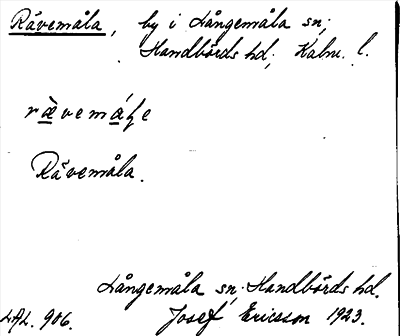 Rävemåla, by i Långemåla sn;
Handbörds hd, Kalm. l.
rävemåle
Rävemåla.
Långemåla sn, Handbörds hd.
LAL. 906. Josef Ericsson 1923.